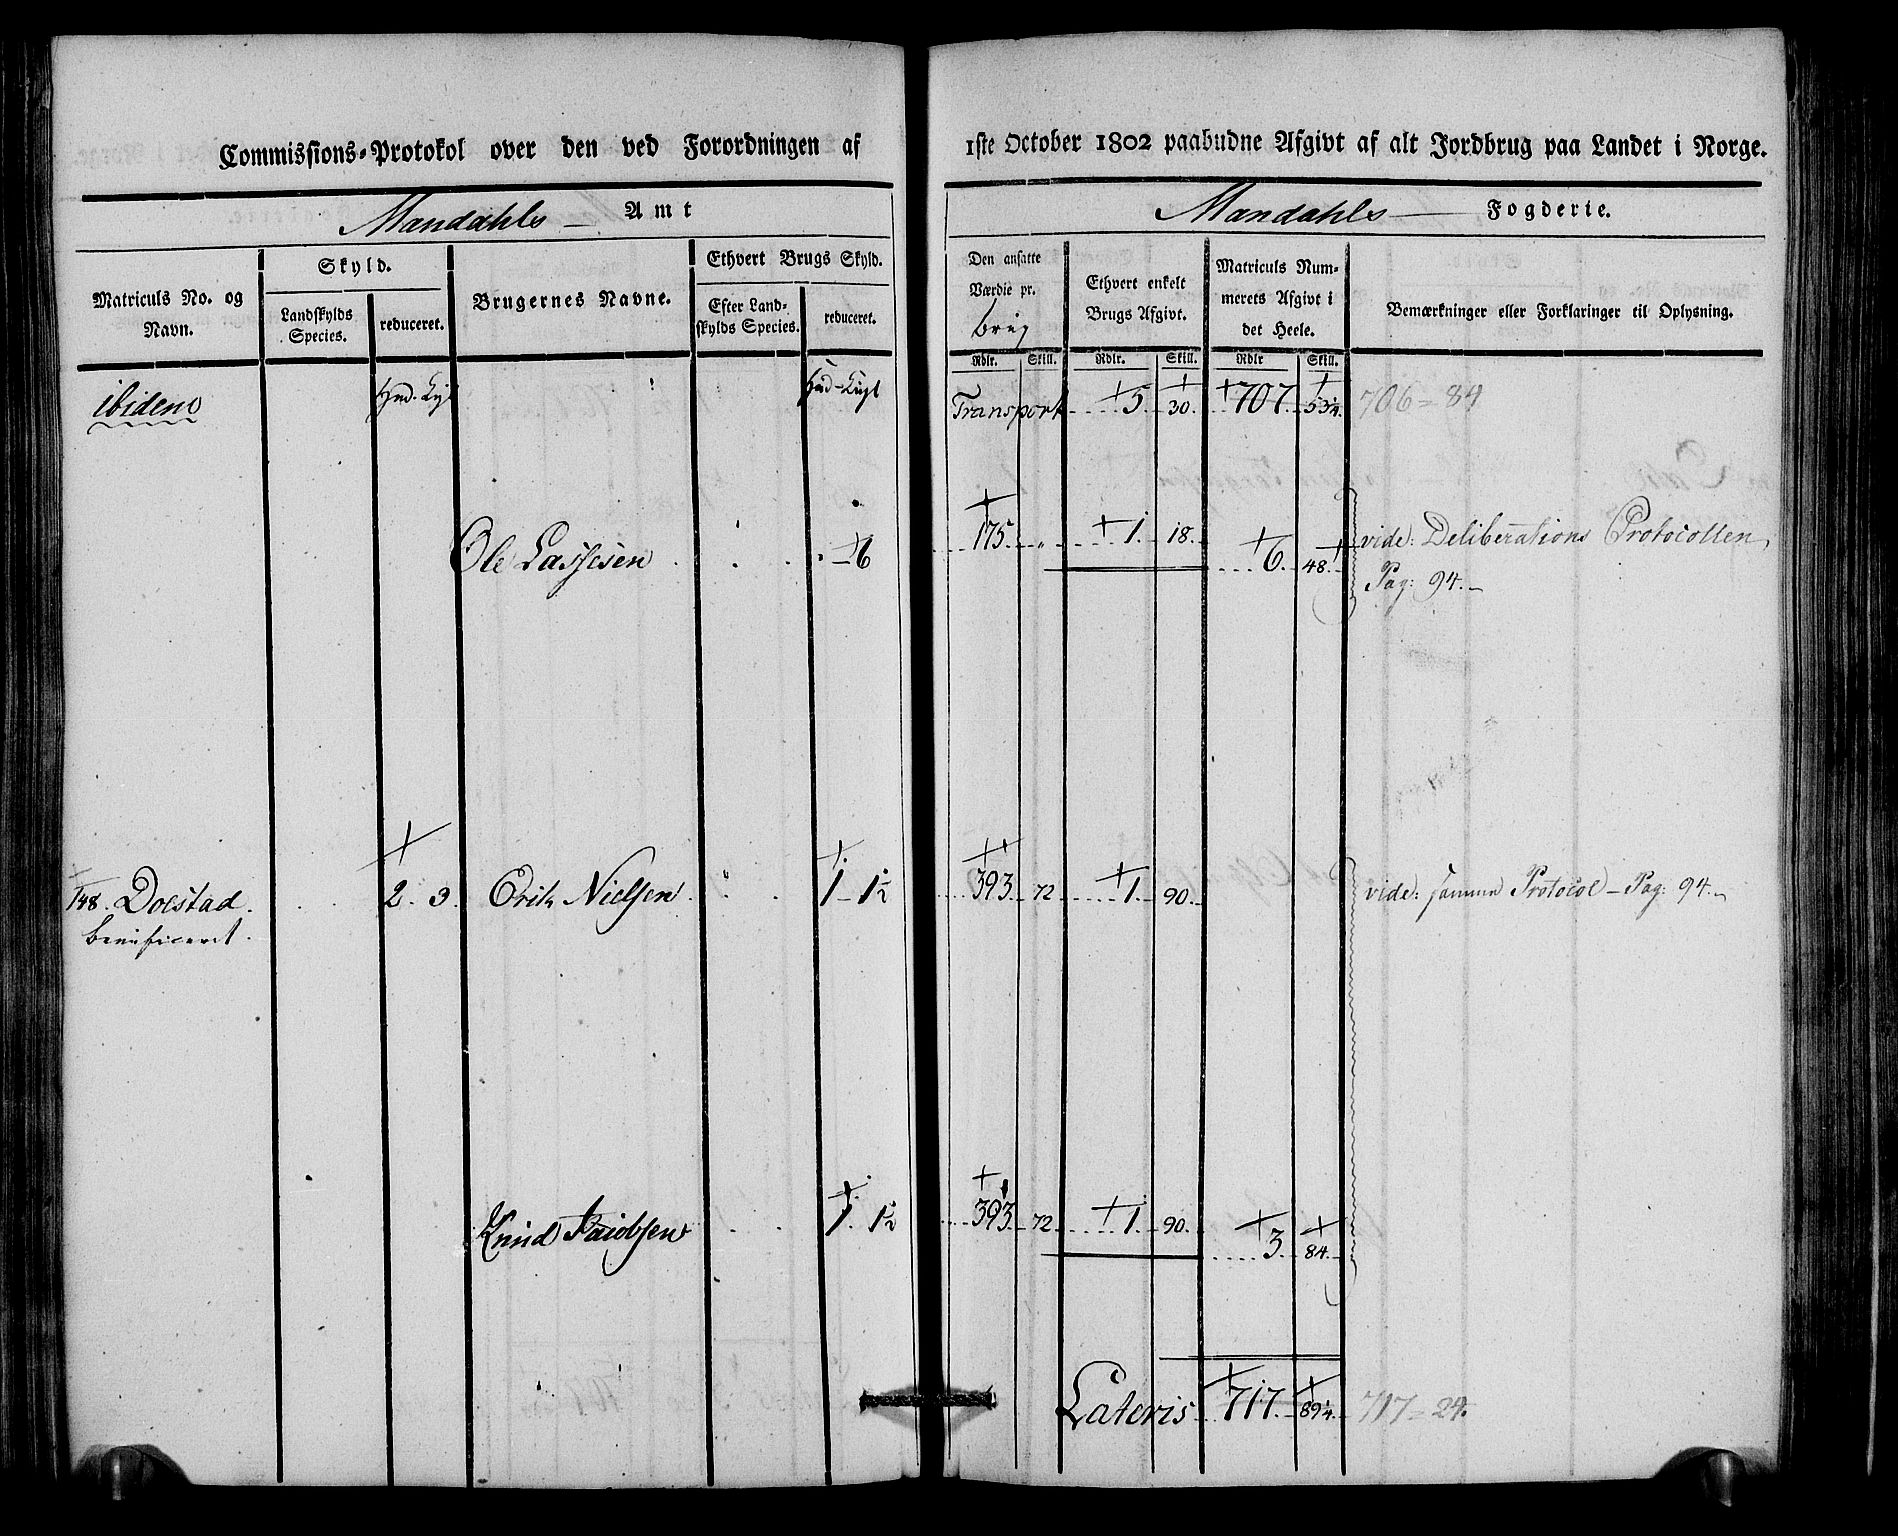 Commissions-Protokol over den ved Forordningen af 1ste October 1802 paabudne Afgivt af alt Jordbrug paa Landet i Norge.
Mandahls Amt
Mandahls Fogderie.
Matriculs No. og Navn.
Skyld.
Landskylds Species.
reduceret.
Brugernes Navne.
Ethvert Brugs Skyld.
Efter Landskylds Species.
reduceret.
Den ansatte Værdie pr. brug
Ethvert enkelt Brugs Afgivt.
Matriculs Nummerets Afgivt i det Heele.
Bemærkninger eller Forklaringer til Oplysning.
Rdlr. Skill. Rdlr. Skill. Rdlr Skill.
ibidem Hud. Hud - Transport 5. 30. 707. 53¼. 706 = 84
Ole Lassesen - 6 175. „ 1. 18. 6. 48. vide: Deliberations Protocollen,
Pag: 94. -
148. Doestad. 2. 3. Erik Nielsen 1 - 1½ 393. 72 1. 90. vide: samme Protocol - Pag: 94. -
beneficeret.
Knud Jacobsen 1. 1½ 393 72 1. 90. 3. 84.
Lateris 717. 89¼. 717 = 24.